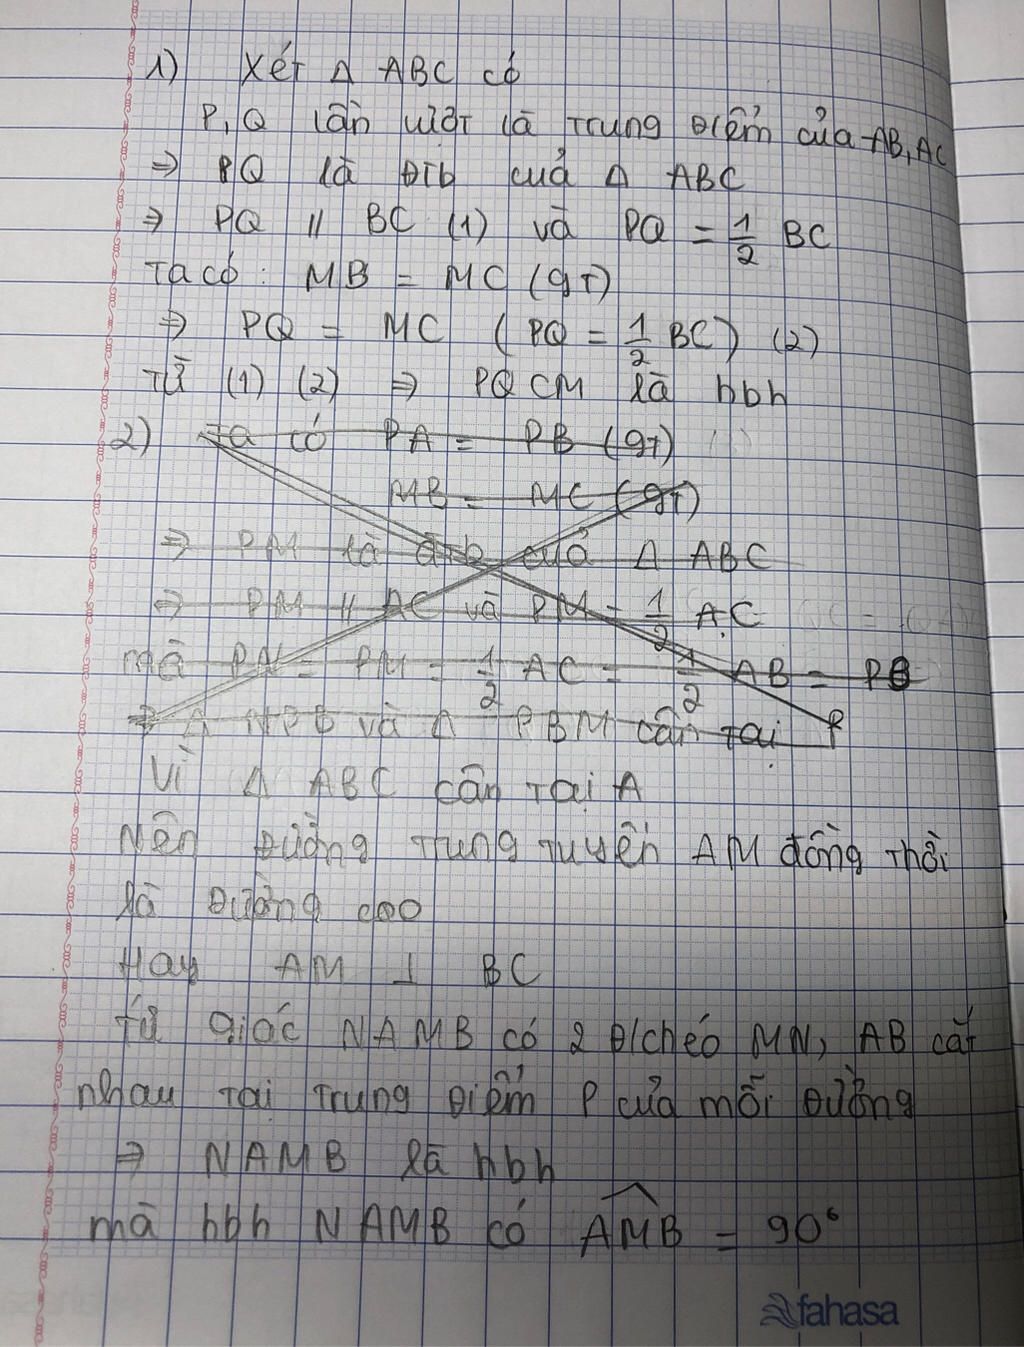 1) Xét Δ ABC có
P, Q lần lượt là trung điểm của AB, AC
⇒ PQ là Đtb của Δ ABC
⇒ PQ // BC (1) và PQ = 1/2 BC
Ta có: MB = MC (gt)
⇒ PQ = MC (PQ = 1/2 BC) (2)
Từ (1) (2) ⇒ PQCM là hbh
2) Ta có PA = PB (gt)
MB = MC (gt)
⇒ PM là đtb của Δ ABC
⇒ PM // AC và PM = 1/2 AC
mà PN = PM = 1/2 AC = 1/2 AB = PB
⇒ Δ NPB và Δ PBM cân tại P
Vì Δ ABC cân tại A
Nên đường trung tuyến AM đồng thời
là đường cao
Hay AM ⊥ BC
Tứ giác NAMB có 2 đ/chéo MN, AB cắt
nhau tại trung điểm P của mỗi đường
⇒ NAMB là hbh
mà hbh NAMB có AMB = 90°
fahasa